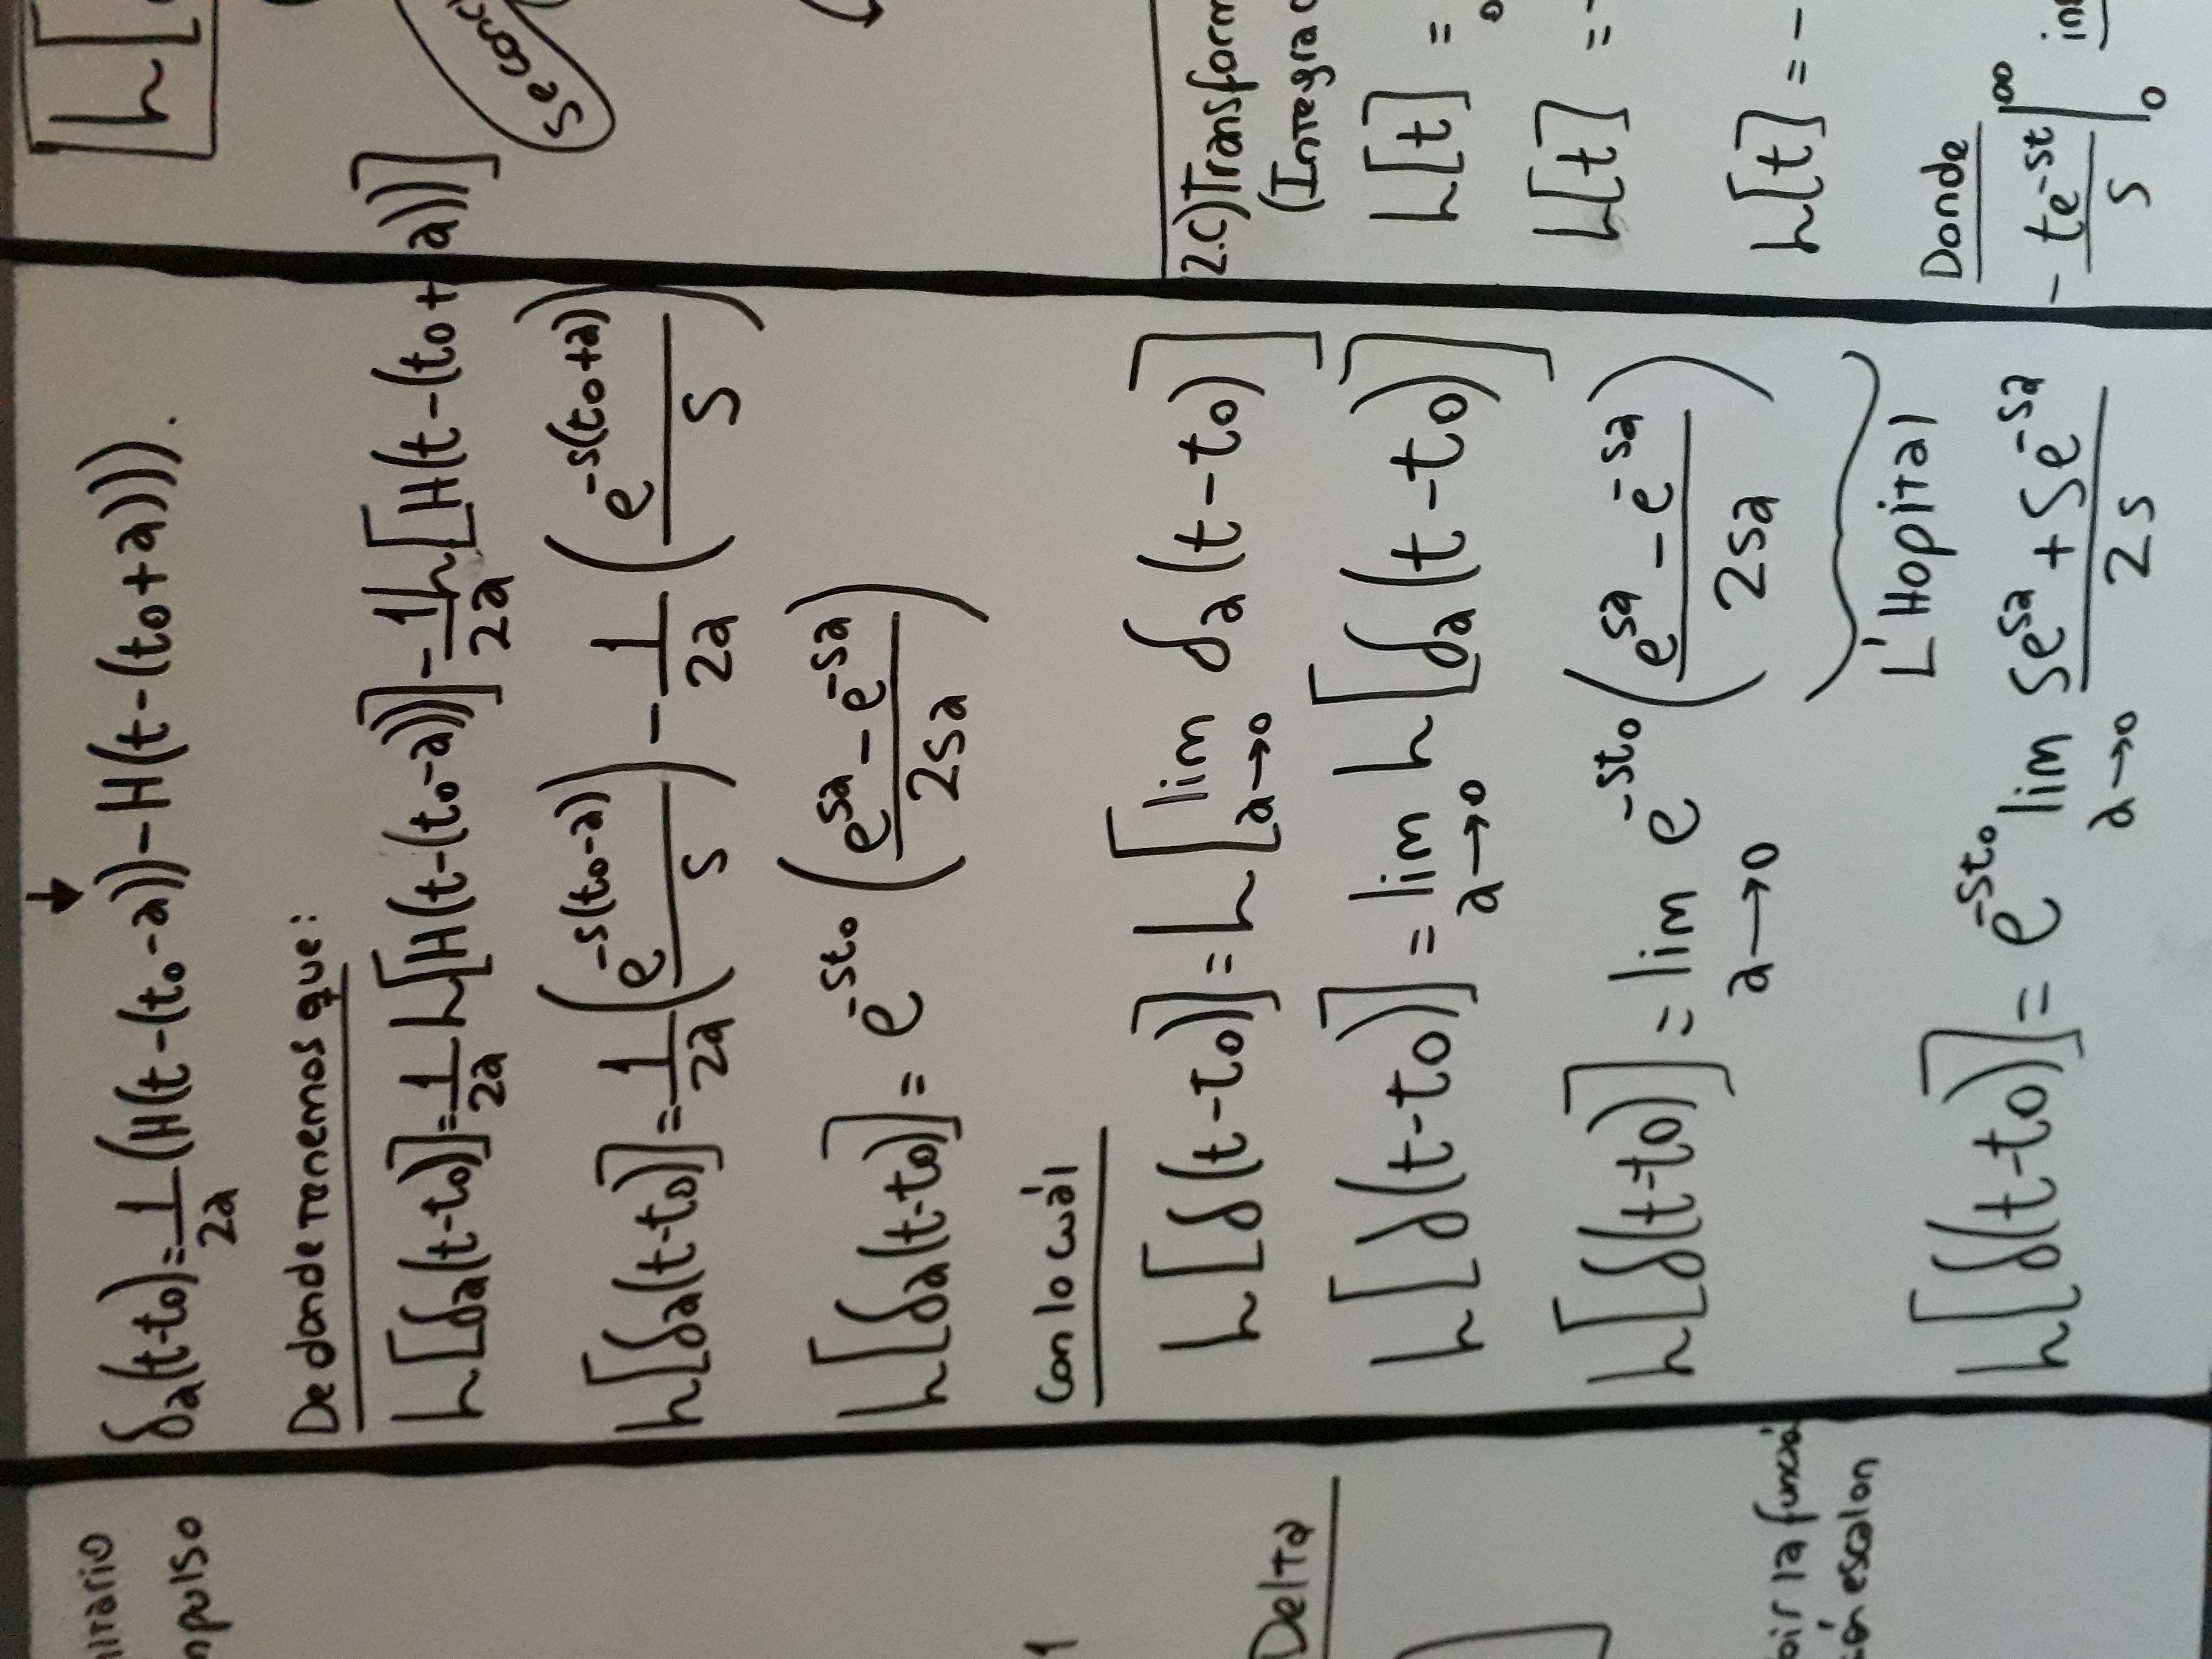 impulso
1
Delta
la función
escalon
δa(t-t0)=1/2a (H(t-(t0-a))-H(t-(t0+a))).
De donde tenemos que:
L[δa(t-t0)]=1/2a L[H(t-(t0-a))]-1/2a L[H(t-(t0+a))]
L[δa(t-t0)]=1/2a (e^-s(t0-a)/s) - 1/2a (e^-s(t0+a)/s)
L[δa(t-t0)]= e^-st0 (e^sa - e^-sa/2sa)
Con lo cuál
L[δ(t-t0)]=L[lim a→0 δa(t-t0)]
L[δ(t-t0)]= lim a→0 L[δa(t-t0)]
L[δ(t-t0)]= lim a→0 e^-st0 (e^sa - e^-sa/2sa)
L'Hopital
L[δ(t-t0)]= e^-st0 lim a→0 se^sa + se^-sa/2s
L[
Se conc
2.c) Transform
(Integra
L[t] =
0
L[t] = -
L[t] = -
Donde
- te^-st/s |0^∞